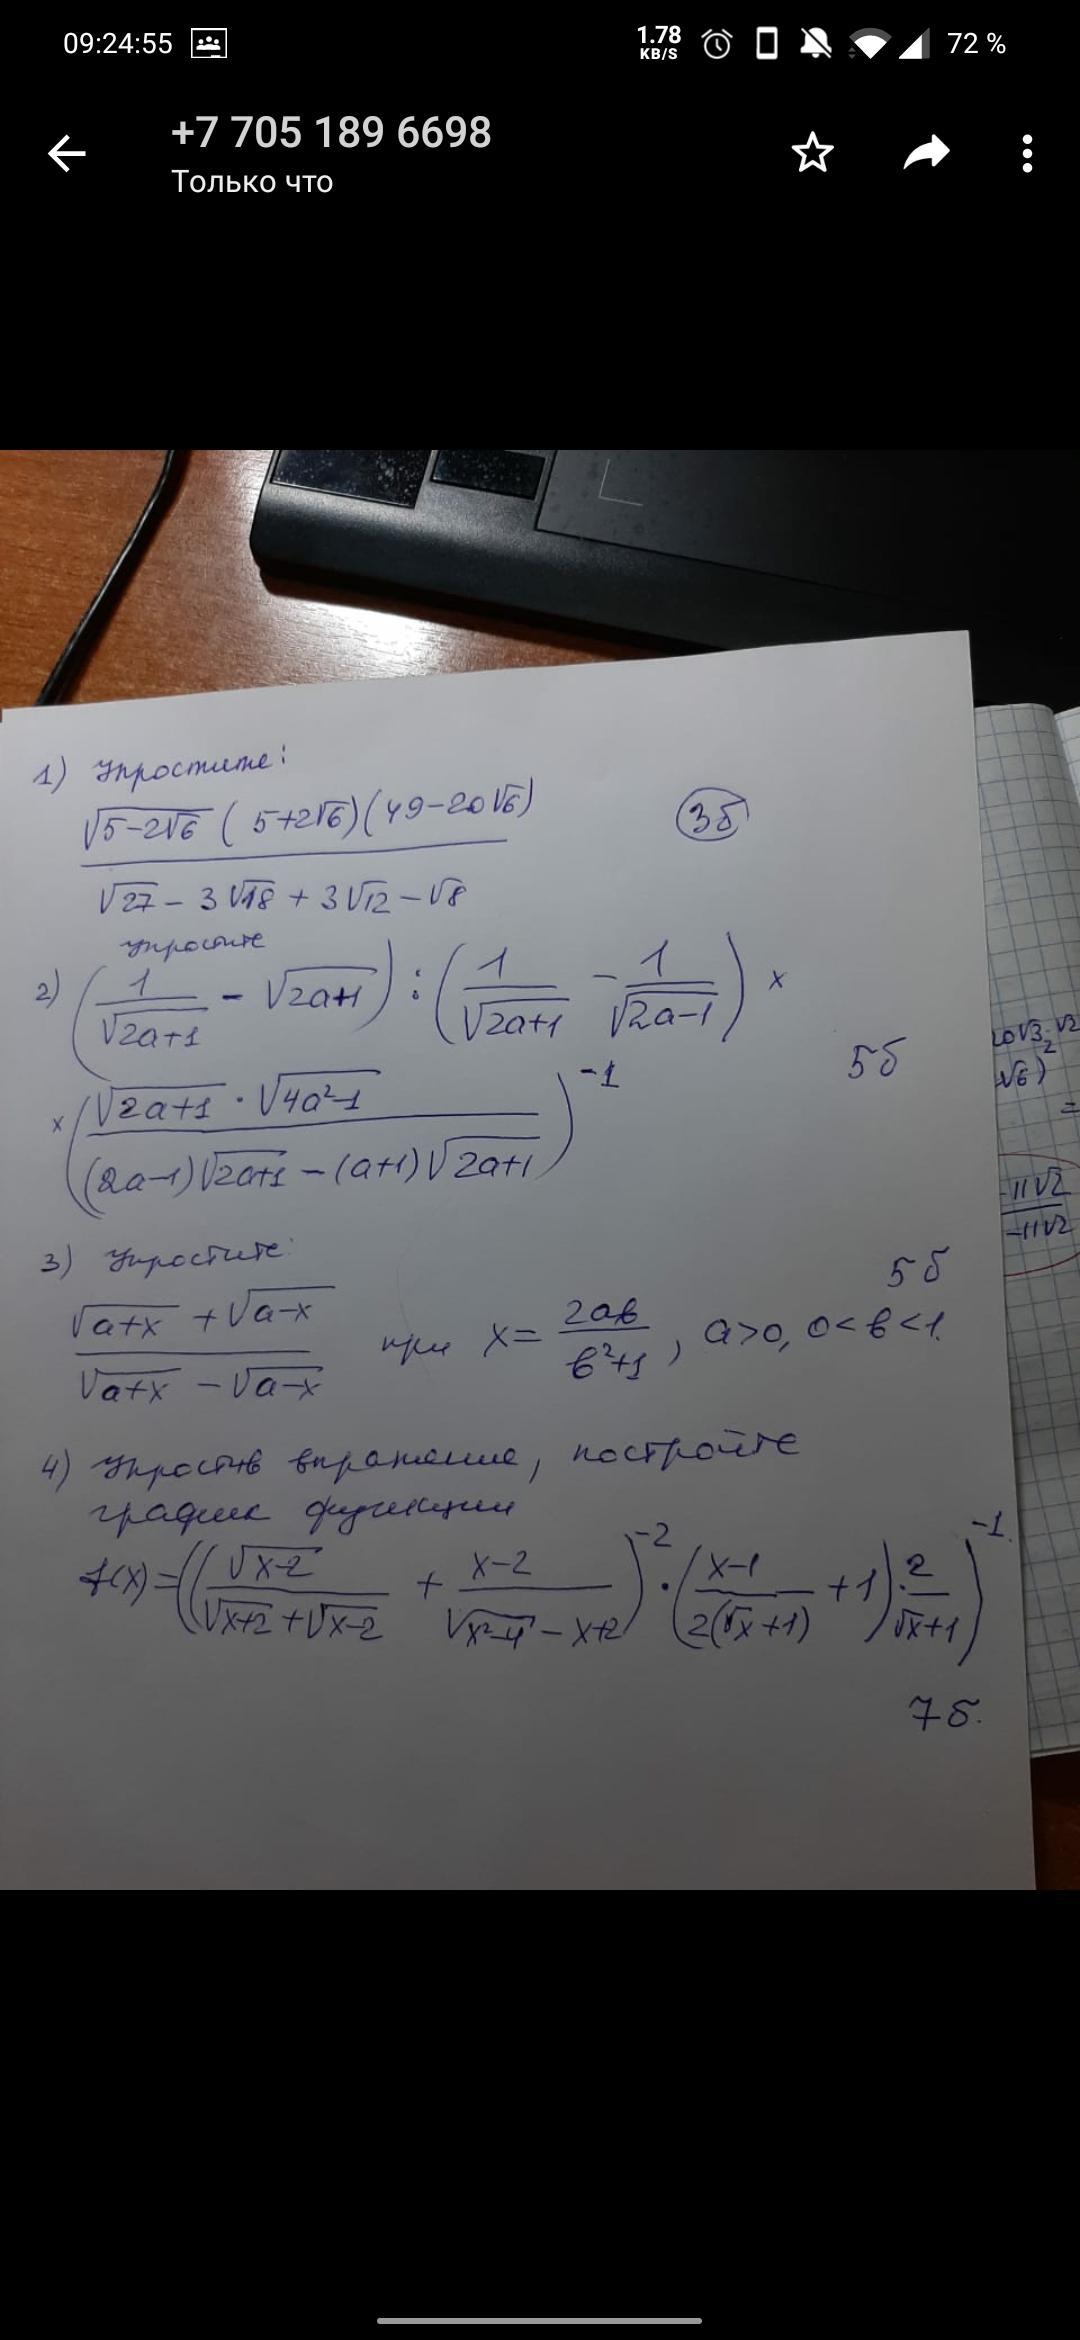 09:24:55
1.78 KB/S
72 %
+7 705 189 6698
Только что
1) Упростите:
√(5-2√6) (5+2√6)(49-20√6)
√27 - 3√18 + 3√12 - √8
3б
упростите
2) (1/√(2a+1) - √(2a+1)) : (1/√(2a+1) - 1/√(2a-1)) ×
× (√(2a+1) · √(4a²-1) / ((2a-1)√(2a+1) - (a+1)√(2a+1)))⁻¹
5б
3) Упростите:
5б
(√(a+x) + √(a-x)) / (√(a+x) - √(a-x)) при x = 2aв/(в²+1), a>0, 0<в<1.
4) Упростив выражение, постройте
график функции
f(x)=((√(x-2)/(√(x+2)+√(x-2)) + (x-2)/(√(x²-4)-x+2))⁻² · ((x-1)/(2(√x+1)) + 1) · 2/(√x+1))⁻¹.
7б.
-11√2
-11√2